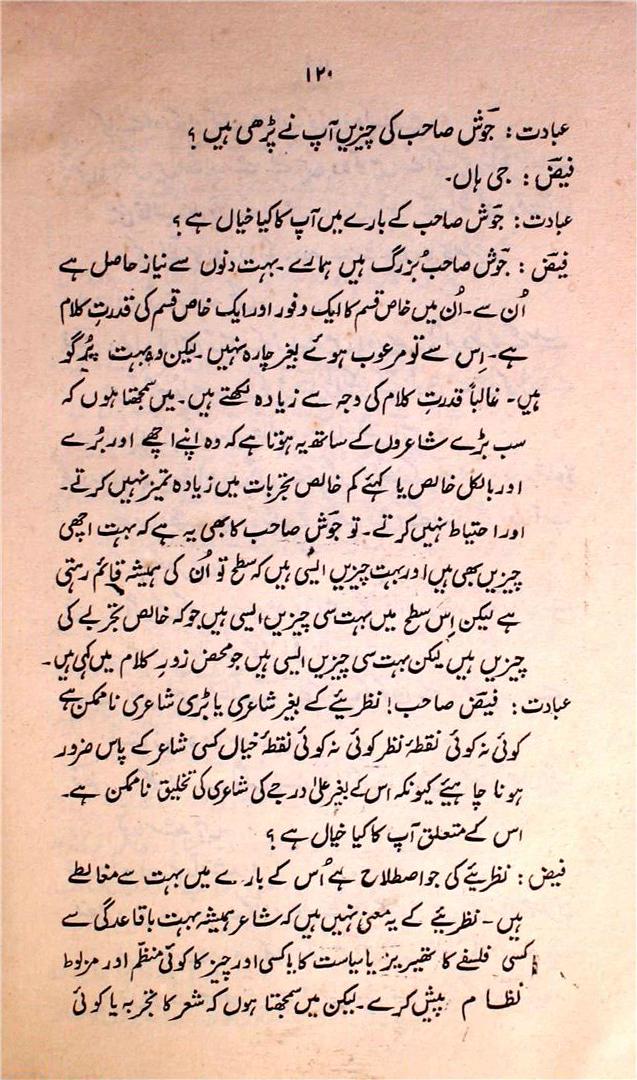 ۱۲۰
عبادت : جوؔش صاحب کی چیزیں آپ نے پڑھی ہیں ؟
فیضؔ : جی ہاں۔
عبادت : جوؔش صاحب کے بارے میں آپ کا کیا خیال ہے ؟
فیضؔ : جوؔش صاحب بُزرگ ہیں ہمارے ۔ بہت دنوں سے نیاز حاصل ہے
اُن سے ۔ اُن میں خاص قسم کا ایک وفور اور ایک خاص قسم کی قدرتِ کلام
ہے ۔ اِس سے تو مرعوب ہوئے بغیر چارہ نہیں ۔ لیکن وہ بہت پُر گو
ہیں ۔ غالباً قدرتِ کلام کی وجہ سے زیادہ لکھتے ہیں ۔ میں سمجھتا ہوں کہ
سب بڑے شاعروں کے ساتھ یہ ہوتا ہے کہ وہ اپنے اچھے اور بُرے
اور بالکل خالص یا کہئے کم خالص تجربات میں زیادہ تمیز نہیں کرتے ۔
اور احتیاط نہیں کرتے ۔ تو جوؔش صاحب کا بھی یہ ہے کہ بہت اچھی
چیزیں بھی ہیں اور بہت چیزیں ایسی ہیں کہ سطح تو اُن کی ہمیشہ قائم رہتی
ہے لیکن اِس سطح میں بہت سی چیزیں ایسی ہیں جو کہ خالص تجربے کی
چیزیں ہیں لیکن بہت سی چیزیں ایسی ہیں جو محض زورِ کلام میں کہی ہیں ۔
عبادت : فیضؔ صاحب ! نظریئے کے بغیر شاعری یا بڑی شاعری ناممکن ہے
کوئی نہ کوئی نقطۂ نظر کوئی نہ کوئی نقطۂ خیال کسی شاعر کے پاس ضرور
ہونا چاہیئے کیونکہ اس کے بغیر علیٰ درجے کی شاعری کی تخلیق ناممکن ہے ۔
اس کے متعلق آپ کا کیا خیال ہے ؟
فیض : نظریئے کی جو اصطلاح ہے اُس کے بارے میں بہت سے مغالطے
ہیں ۔ نظریئے کے یہ معنی نہیں ہیں کہ شاعر ہمیشہ بہت باقاعدگی سے
کسی فلسفے کا یا سیاست کا یا کسی اور چیز کا کوئی منظّم اور مربوط
نظام پیش کرے ۔ لیکن میں سمجھتا ہوں کہ شعر کا تجربہ یا کوئی